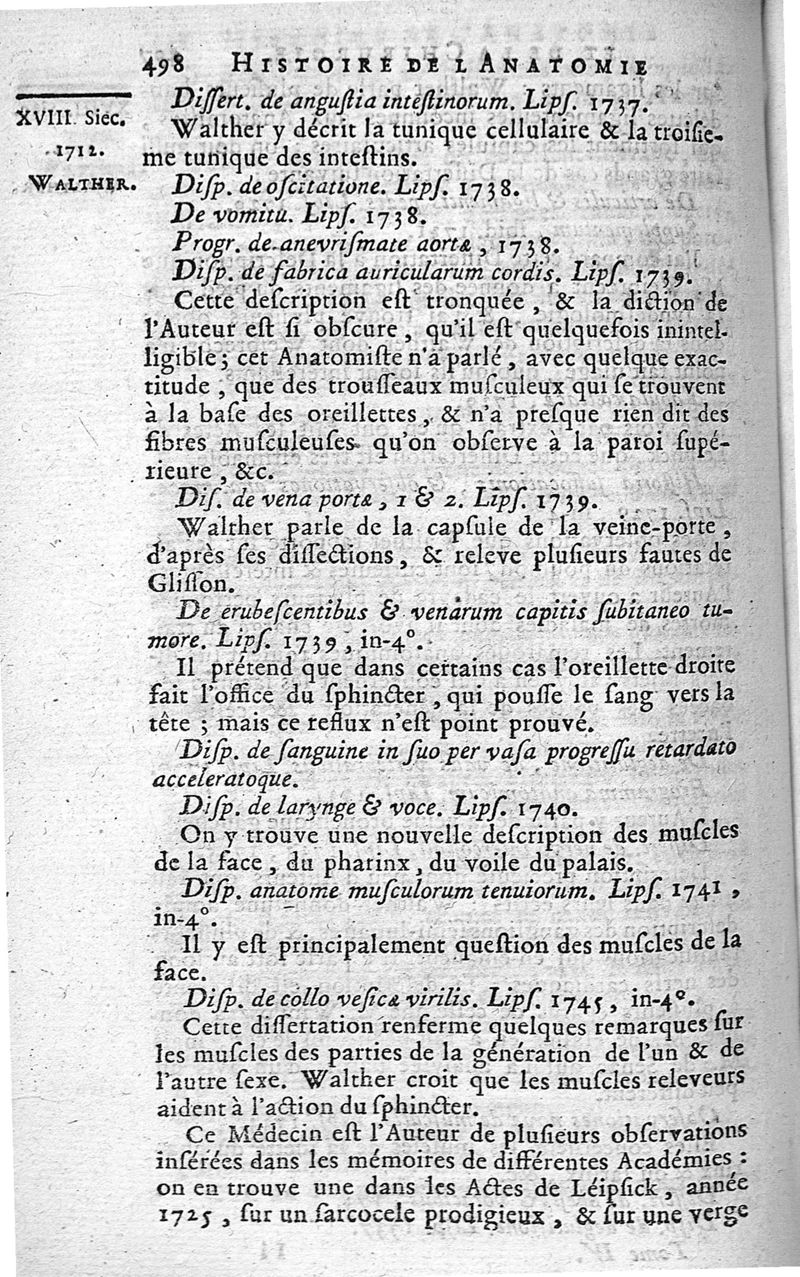 498 HISTOIRE DE L'ANATOMIE
XVIII. Siec.
1712.
WALTHER.
Diſſert. de anguſtia inteſtinorum. Lipſ. 1737.
Walther y décrit la tunique cellulaire & la troiſie-
me tunique des inteſtins.
Diſp. de oſcitatione. Lipſ. 1738.
De vomitu. Lipſ. 1738.
Progr. de anevriſmate aortæ, 1738.
Diſp. de fabrica auricularum cordis. Lipſ. 1739.
Cette deſcription eſt tronquée, & la diction de
l'Auteur eſt ſi obſcure, qu'il eſt quelquefois inintel-
ligible; cet Anatomiſte n'a parlé, avec quelque exac-
titude, que des trouſſeaux muſculeux qui ſe trouvent
à la baſe des oreillettes, & n'a preſque rien dit des
fibres muſculeuſes qu'on obſerve à la paroi ſupé-
rieure, &c.
Diſ. de vena portæ, 1 & 2. Lipſ. 1739.
Walther parle de la capſule de la veine-porte,
d'après ſes diſſections, & releve pluſieurs fautes de
Gliſſon.
De erubeſcentibus & venarum capitis ſubitaneo tu-
more. Lipſ. 1739, in-4°.
Il prétend que dans certains cas l'oreillette droite
fait l'office du ſphincter, qui pouſſe le ſang vers la
tête; mais ce reflux n'eſt point prouvé.
Diſp. de ſanguine in ſuo per vaſa progreſſu retardato
acceleratoque.
Diſp. de larynge & voce. Lipſ. 1740.
On y trouve une nouvelle deſcription des muſcles
de la face, du pharinx, du voile du palais.
Diſp. anatome muſculorum tenuiorum. Lipſ. 1741,
in-4°.
Il y eſt principalement queſtion des muſcles de la
face.
Diſp. de collo veſicæ virilis. Lipſ. 1745, in-4°.
Cette diſſertation renferme quelques remarques ſur
les muſcles des parties de la génération de l'un & de
l'autre ſexe. Walther croit que les muſcles releveurs
aident à l'action du ſphincter.
Ce Médecin eſt l'Auteur de pluſieurs obſervations
inſérées dans les mémoires de différentes Académies:
on en trouve une dans les Actes de Léipſick, année
1725, ſur un ſarcocele prodigieux, & ſur une verge